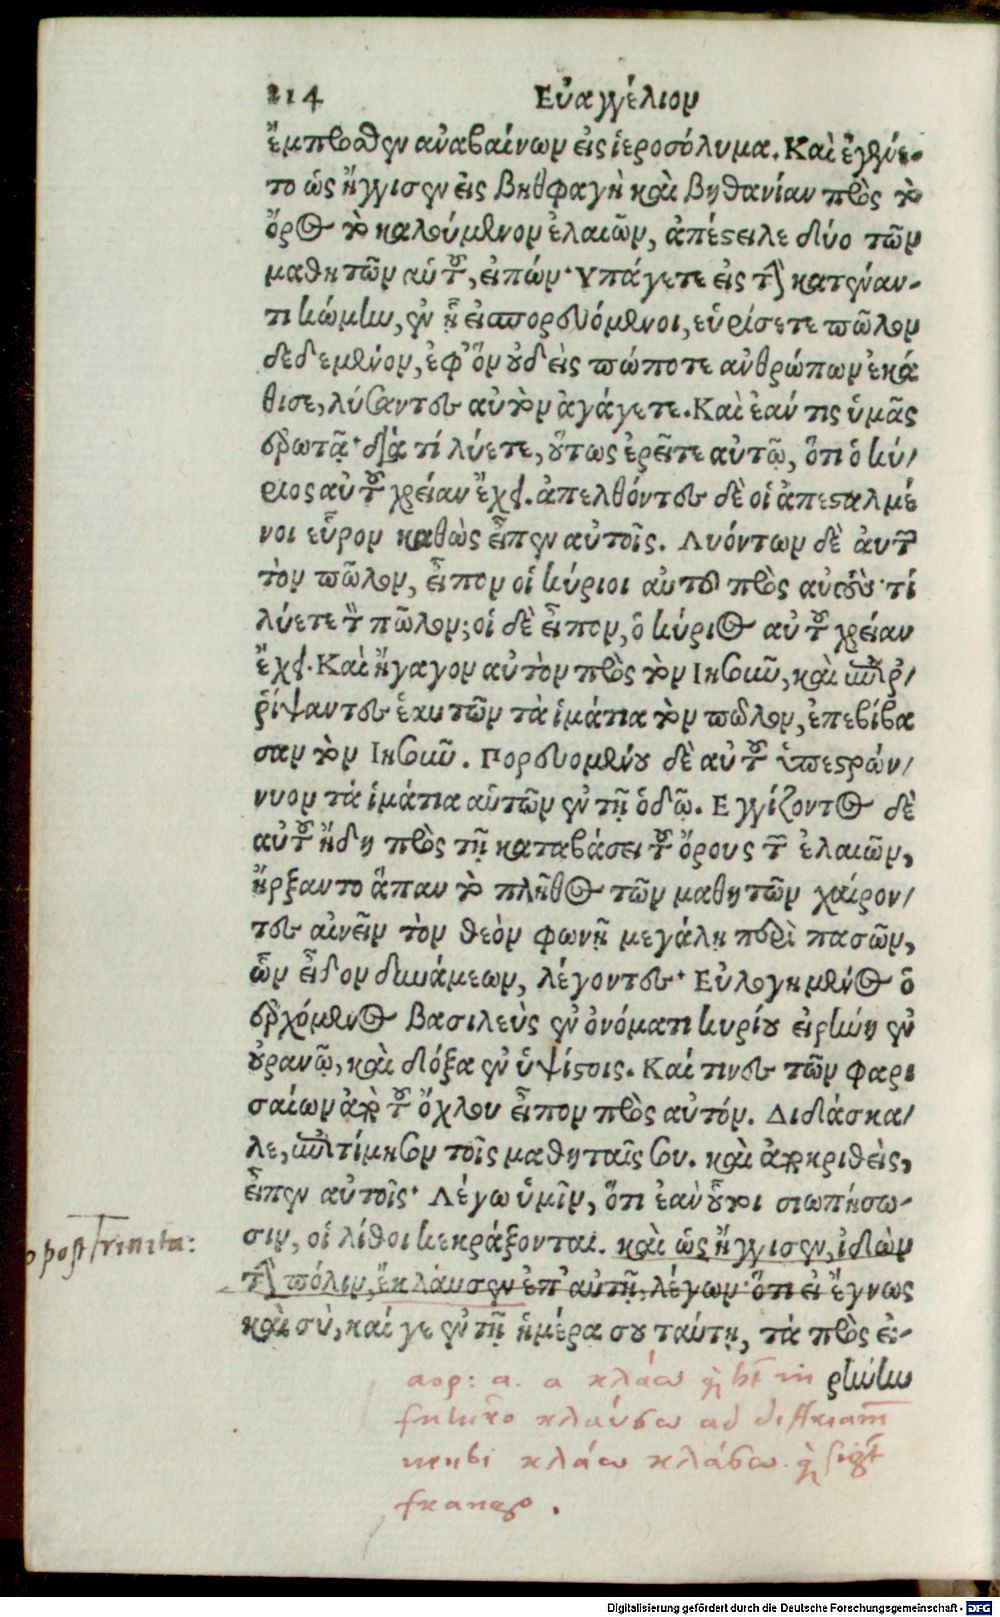 214 Εὐαγγέλιον
ἔμπροσθεν ἀναβαίνων εἰς ἱεροσόλυμα. Καὶ ἐγένε-
το ὡς ἤγγισεν εἰς βηθφαγὴ καὶ βηθανίαν πρὸς τὸ
ὄρος τὸ καλούμενον ἐλαιῶν, ἀπέστειλε δύο τῶν
μαθητῶν αὑτοῦ, εἰπών· Υπάγετε εἰς τὴν κατέναν-
τι κώμην, ἐν ᾗ εἰσπορευόμενοι, εὑρίσετε πῶλον
δεδεμένον, ἐφ' ὃν οὐδεὶς πώποτε ἀνθρώπων ἐκά
θισε, λύσαντες αὐτὸν ἀγάγετε. Καὶ ἐάν τις ὑμᾶς
ἐρωτᾷ· διὰ τί λύετε, οὕτως ἐρεῖτε αὐτῷ, ὅτι ὁ κύ/
ριος αὐτοῦ χρείαν ἔχει. ἀπελθόντες δὲ οἱ ἀπεσταλμέ
νοι εὗρον καθὼς εἶπεν αὐτοῖς. Λυόντων δὲ ἀυτῶν
τὸν πῶλον, εἶπον οἱ κύριοι αὐτοῦ πρὸς αὐτούς· τί
λύετε τὸν πῶλον; οἱ δὲ εἶπον, ὁ κύριος αὐτοῦ χρείαν
ἔχει. Καὶ ἤγαγον αὐτὸν πρὸς τὸν Ιησοῦν, καὶ ἐπιρ/
ῥίψαντες ἑαυτῶν τὰ ἱμάτια τὸν πῶλον, ἐπεβίβα
σαν τὸν Ιησοῦν. Πορευομένου δὲ αὐτοῦ ὑπεστρών/
νυον τὰ ἱμάτια αὑτῶν ἐν τῇ ὁδῷ. Εγγίζοντος δὲ
αὐτοῦ ἤδη πρὸς τῇ καταβάσει τοῦ ὄρους τῶν ἐλαιῶν,
ἤρξαντο ἅπαν τὸ πλῆθος τῶν μαθητῶν χαίρον/
τες αἰνεῖν τὸν θεὸν φωνῇ μεγάλῃ περὶ πασῶν,
ὧν εἶδον δυνάμεων, λέγοντες· Εὐλογημένος ὁ
ἐρχόμενος βασιλεὺς ἐν ὀνόματι κυρίου εἰρήνη ἐν
οὐρανῷ, καὶ δόξα ἐν ὑψίστοις. Καί τινες τῶν φαρι
σαίων ἀπὸ τοῦ ὄχλου εἶπον πρὸς αὐτόν. Διδάσκα/
λε, ἐπιτίμησον τοῖς μαθηταῖς σου. καὶ ἀποκριθεὶς,
εἶπεν αὐτοῖς· Λέγω ὑμῖν, ὅτι ἐὰν οὗτοι σιωπήσω-
σιν, οἱ λίθοι κεκράξονται. καὶ ὡς ἤγγισεν, ἰδὼν
post Trinita:
τὴν πόλιν, ἔκλαυσεν ἐπ' αὐτῇ, λέγων· ὅτι εἰ ἔγνως
καὶ σὺ, καί γε ἐν τῇ ἡμέρᾳ σου ταύτῃ, τὰ πρὸς εἰ-
ρήνην
αορ: α. α κλάω q̃ ht̃ in
futuro κλαύσω ad differiam̃
uerbi κλάω κλάσω. q̃ sigt̃
frango.